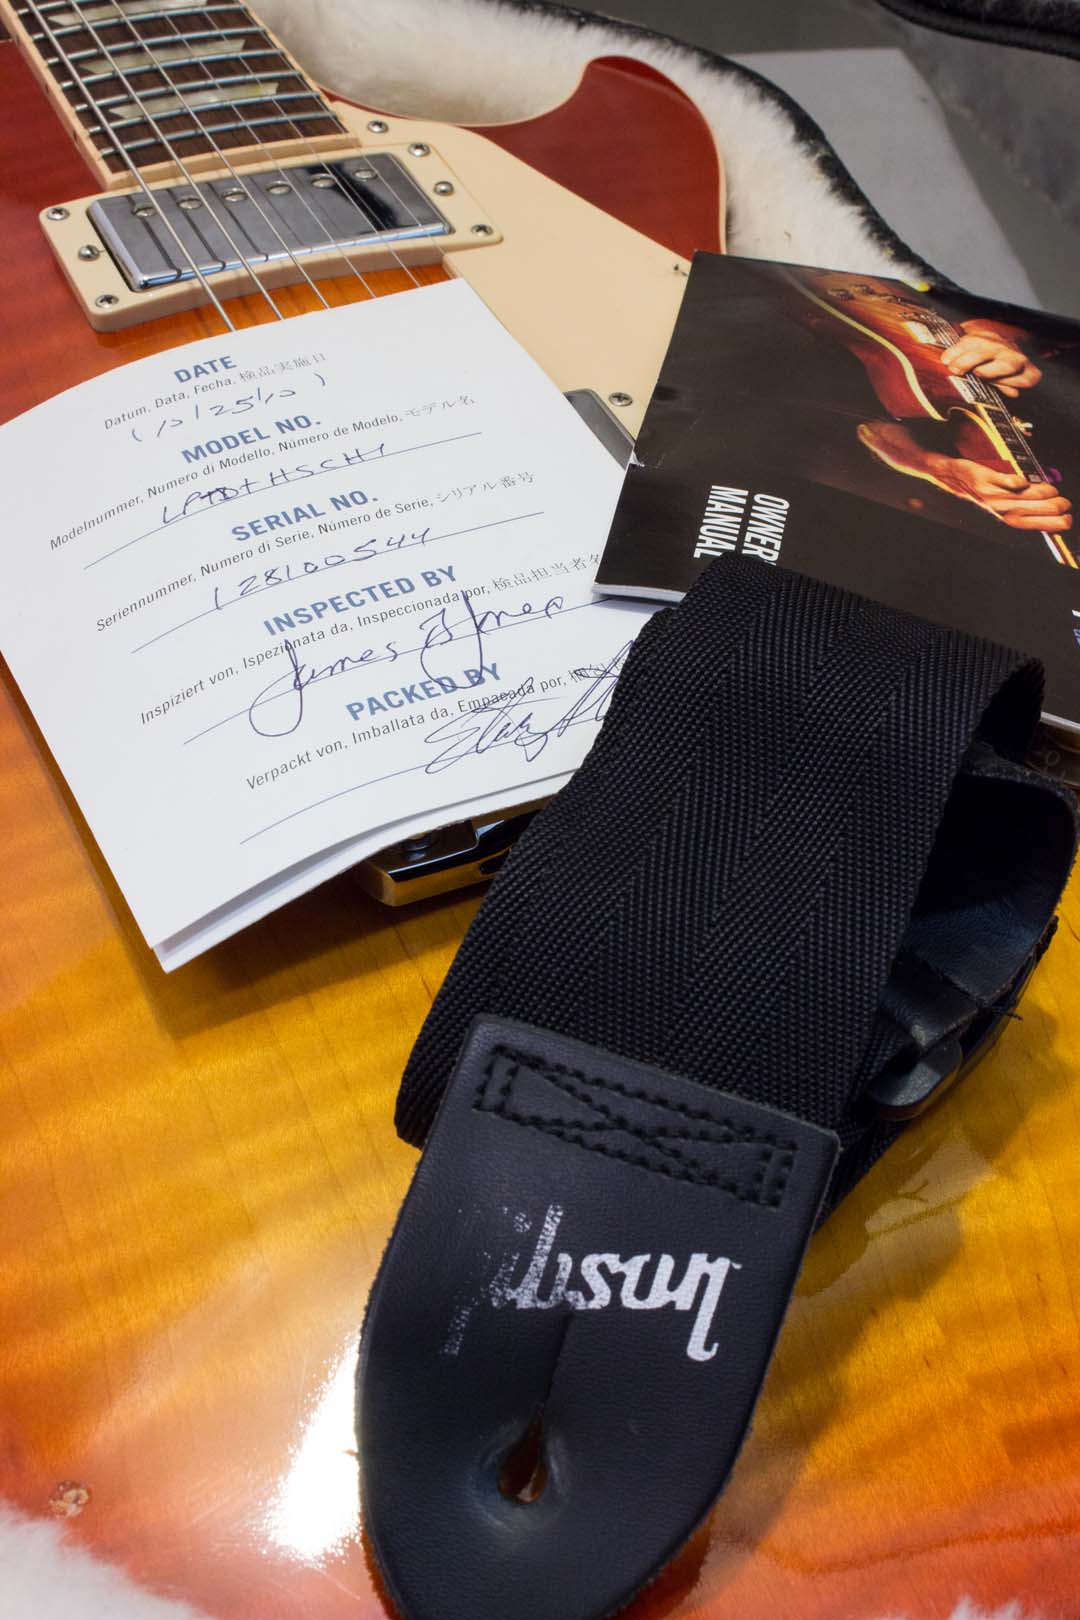 DATE
Datum, Data, Fecha, 検品実施日
(10/25/10)
MODEL NO.
Modelnummer, Numero di Modello, Número de Modelo, モデル名
LPTDTHSCH1
SERIAL NO.
Seriennummer, Numero di Serie, Número de Serie, シリアル番号
128100544
INSPECTED BY
Inspiziert von, Ispezionata da, Inspeccionada por, 検品担当者名
James
PACKED BY
Verpackt von, Imballata da, Empacada por,
OWNER'
MANUAL